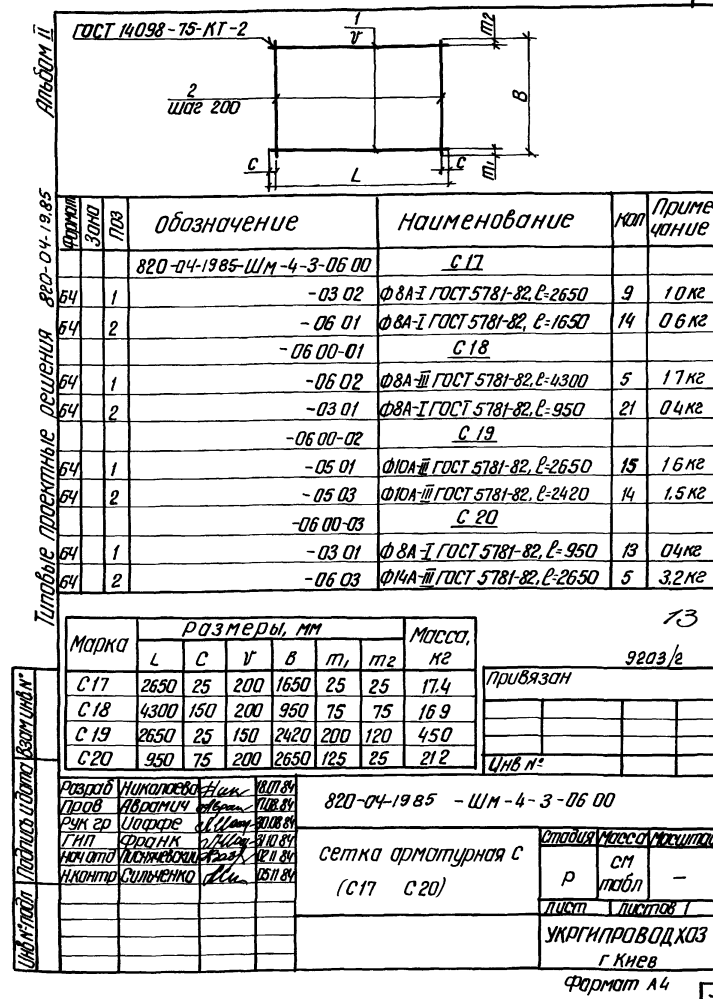 Альбом II
ГОСТ 14098-75-КТ-2
1
v
m2
2
шаг 200
B
C
L
C
m1
Типовые проектные решения 820-04-19.85
Формат Зона Поз Обозначение Наименование Кол Приме чание
820-04-1985-ШМ-4-3-06 00 С 17
БЧ 1 -03 02 Ф8А-I ГОСТ 5781-82, ℓ=2650 9 1 0 кг
БЧ 2 -06 01 Ф8А-I ГОСТ 5781-82, ℓ=1650 14 0 6 кг
-06 00-01 С 18
БЧ 1 -06 02 Ф8А-III ГОСТ 5781-82, ℓ=4300 5 1 7 кг
БЧ 2 -03 01 Ф8А-I ГОСТ 5781-82, ℓ=950 21 0 4 кг
-06 00-02 С 19
БЧ 1 -05 01 Ф10А-III ГОСТ 5781-82, ℓ=2650 15 1 6 кг
БЧ 2 -05 03 Ф10А-III ГОСТ 5781-82, ℓ=2420 14 1.5 кг
-06 00-03 С 20
БЧ 1 -03 01 Ф8А-I ГОСТ 5781-82, ℓ=950 13 0 4 кг
БЧ 2 -06 03 Ф14А-III ГОСТ 5781-82, ℓ=2650 5 3.2 кг
13
Марка Размеры, мм Масса, кг
L C v B m1 m2
С 17 2650 25 200 1650 25 25 17.4
С 18 4300 150 200 950 75 75 16 9
С 19 2650 25 150 2420 200 120 45 0
С 20 950 75 200 2650 125 25 21 2
9203/2
Привязан
Инв №
Взам инв №
Подпись и дата
Инв № подл
Разраб Николаева 18.07.84
Пров Аврамич 17.08.84
Рук гр Иоффе 30.08.84
ГИП Франк 31.10 84
Нач отд 02.11 84
Н.контр Сильченко 05 11 84
820-04-19 85 -ШМ-4-3-06 00
Сетка арматурная С
(С 17 С 20)
Стадия Масса Масштаб
Р см табл –
Лист Листов 1
УКРГИПРОВОДХОЗ
г Киев
Формат А4